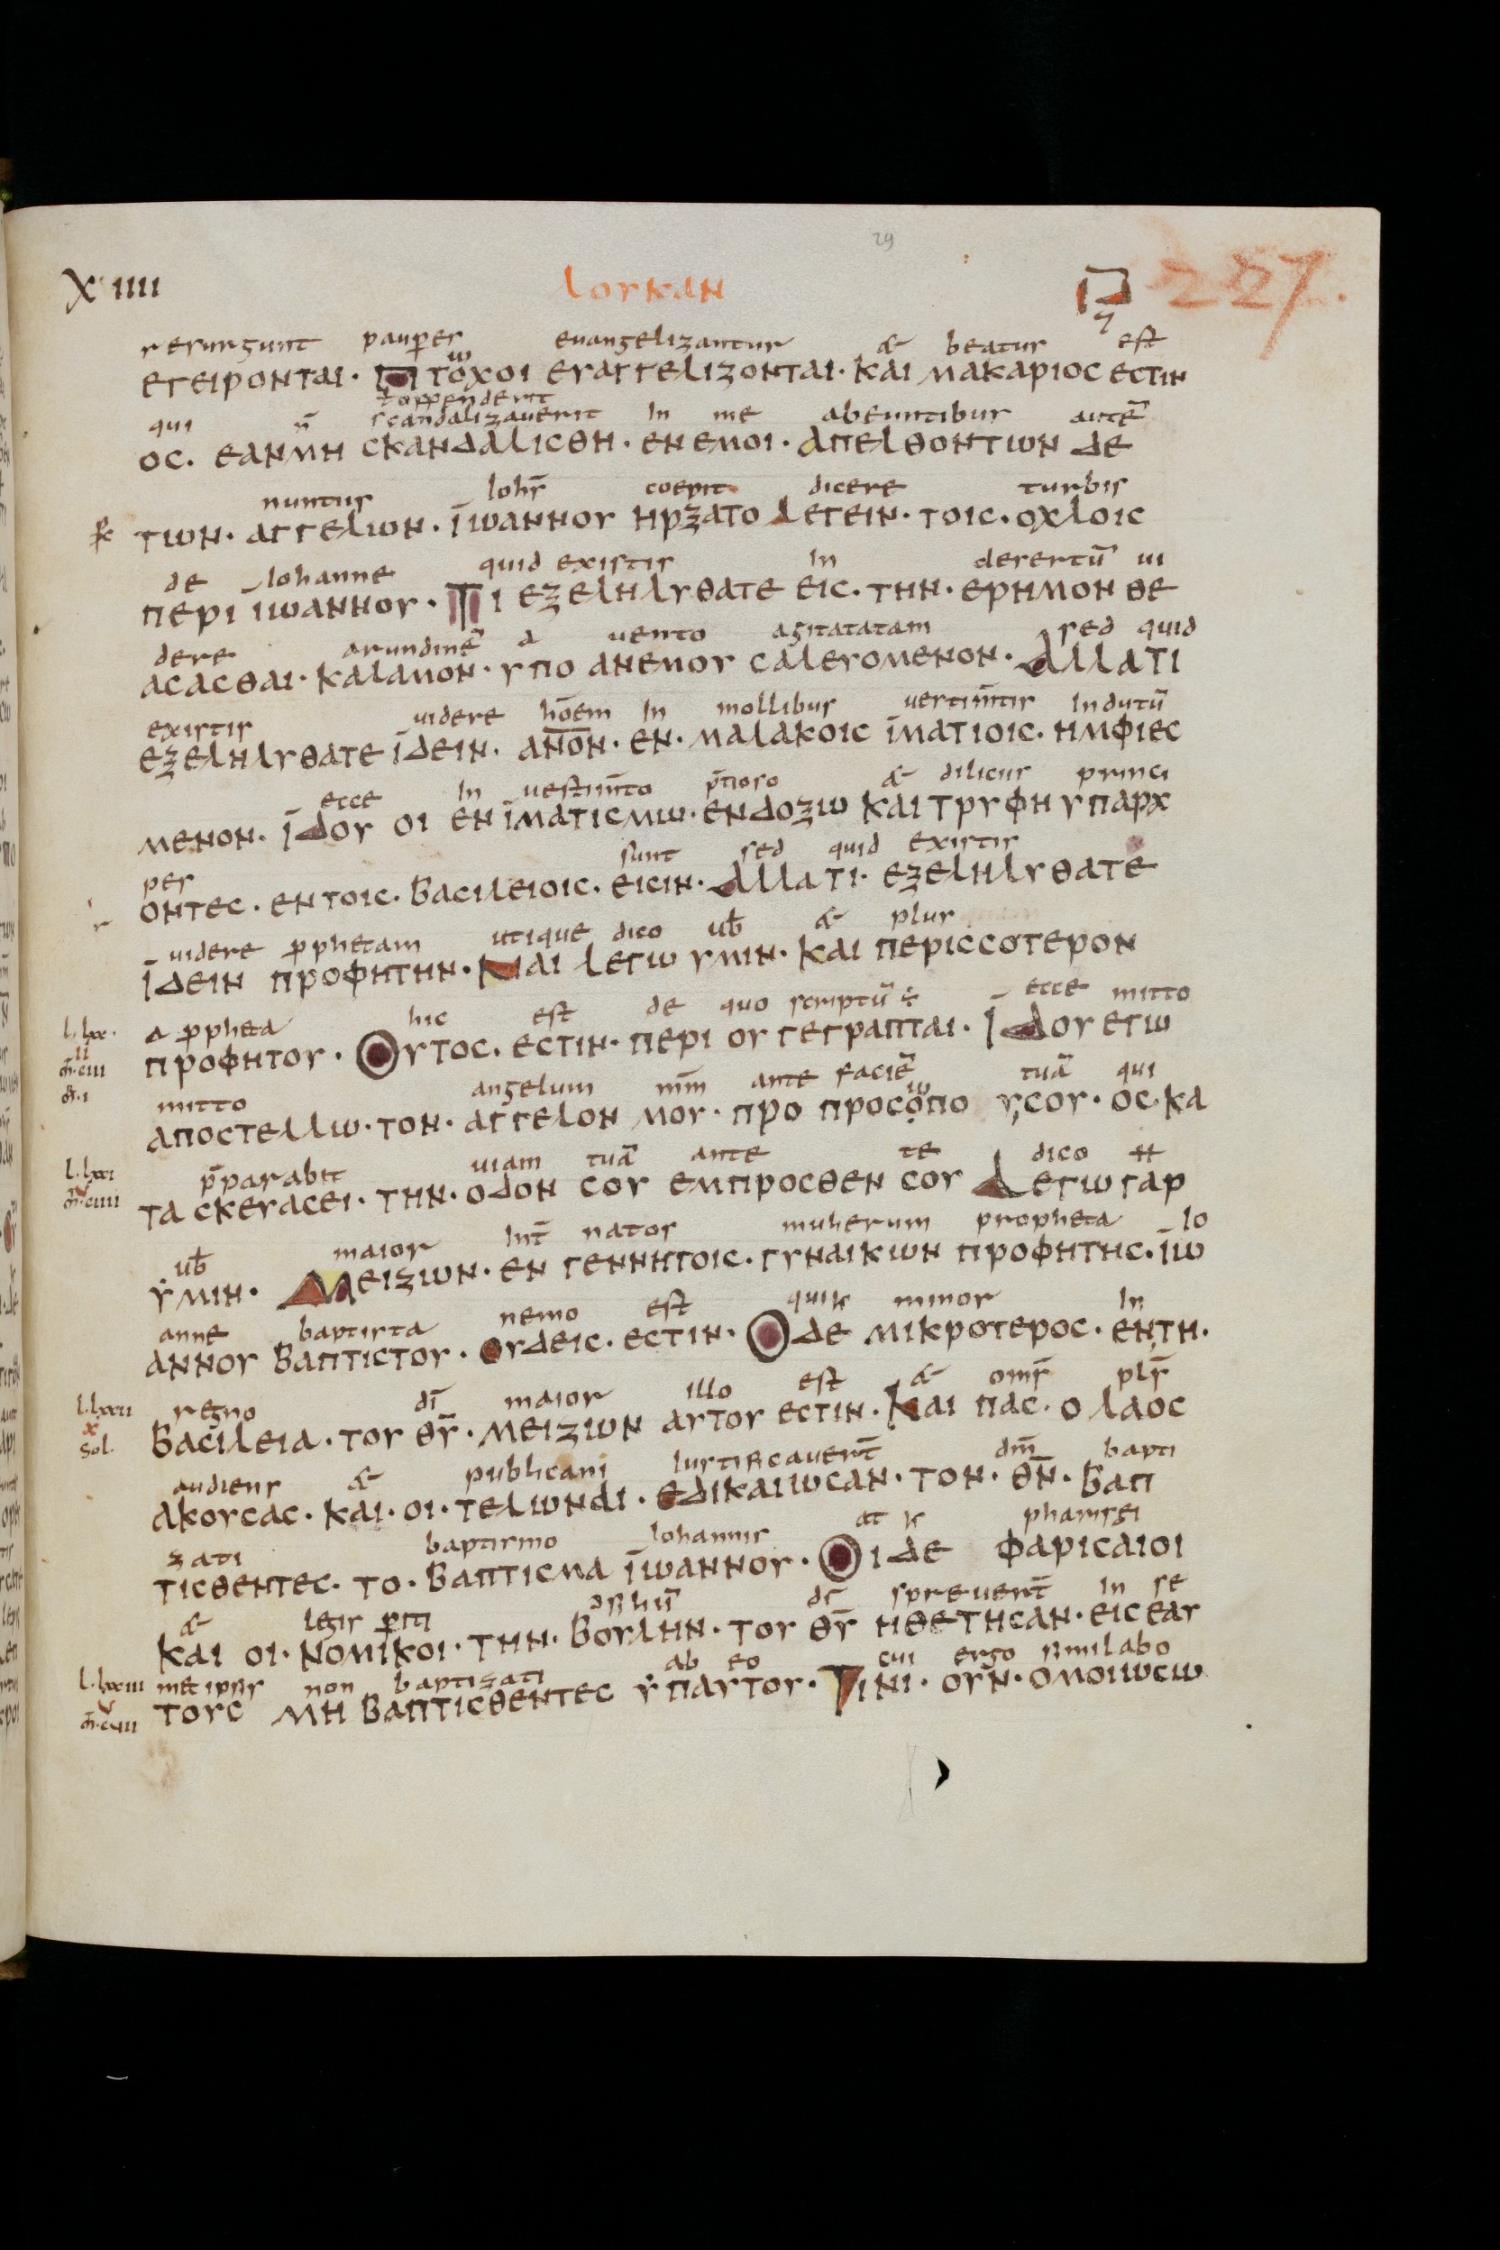 29
X IIII
lorkan
227
resurgunt pauperes euangelizantur & beatus est
εγειρονται· Πτοχοι ευαγγελιζονται· και μακαριος εστιν
ł offenderit
qui n̄ scandalizauerit in me abeuntibus autē
ος. εανμη σκανδαλισθη· εν εμοι· απελθοντων δε
nuntiis iohis̄ coepit dicere turbis
των· αγγελων· ϊωαννου ηρξατο λεγειν· τοις· οχλοις
de iohanne quid existis in desertū ui
περι ιωαννου· Τι εξεληλυθατε εις· την· ερημον θε
dere arundinē a uento agitatatam sed quid
ασασθαι· καλαμον· υπο ανεμου σαλευομενον· Αλλατι
existis uidere hōem in mollibus uestim̄tis indutū
εξεληλυθατε ϊδειν· αν̅ο̅ν· εν· μαλακοις ϊματιοις· ημφιες
ecce in uestim̄to p̄tioso & dilicus princi
μενον· ϊδου οι εν ϊματισμω· ενδοξω και τρυφη υπαρχ
pes sunt sed quid existis
οντες· εντοις· βασιλειοις· εισιν· Αλλατι· εξεληλυθατε
uidere pphetam utique dico ub̄ & plus
ϊδειν προφητην· Ναι λεγω υμιν· και περισσοτερον
l. lxx· a ppheta hic est de quo scriptū ÷ ecce mitto
προφητου· Ουτος· εστιν· περι ου γεγραπται· Ιδου εγω
mitto angelum mm̄ ante faciē tuā qui
αποστελλω· τον· αγγελον μου· προ προσοπο υσου· ος·κα
l. lxxi p̄parabit uiam tuā ante te dico
τα σκευασει· την· οδον σου εμπροσθεν σου Λεγω γαρ
ub̄ maior int̄ natos mulierum propheta io
υμιν· Μειζων· εν γεννητοις· γυναικων προφητης· ϊω
anne baptista nemo est qui minor in
αννου βαπτιστου· Ουδεις· εστιν· Ο δε μικροτερος· εντη·
l. lxxii regno dī maior illo est & omis̄ pls̄
βασιλεια· του θ̅υ̅· μειζων αυτου εστιν· Και πας· ο λαος
sol.
audiens & publicani iustificauert̄ dm̄ bapti
ακουσας· και· οι· τελωναι· εδικαιωσαν· τον· θ̅ν̅· βαπ
zati baptismo iohannis at pharisei
τισθεντες· το· βαπτισμα ϊωαννου· Οι δε φαρισαιοι
& legis piti dī spreuert̄ in se
και οι· νομικοι· την· βουλην· του θ̅υ̅ ηθετησαν· εις εαυ
l. lxxiii met ipsis non baptizati ab eo cui ergo similabo
τους μη βαπτισθεντες υπαυτου· Τινι· ουν· ομοιωσω